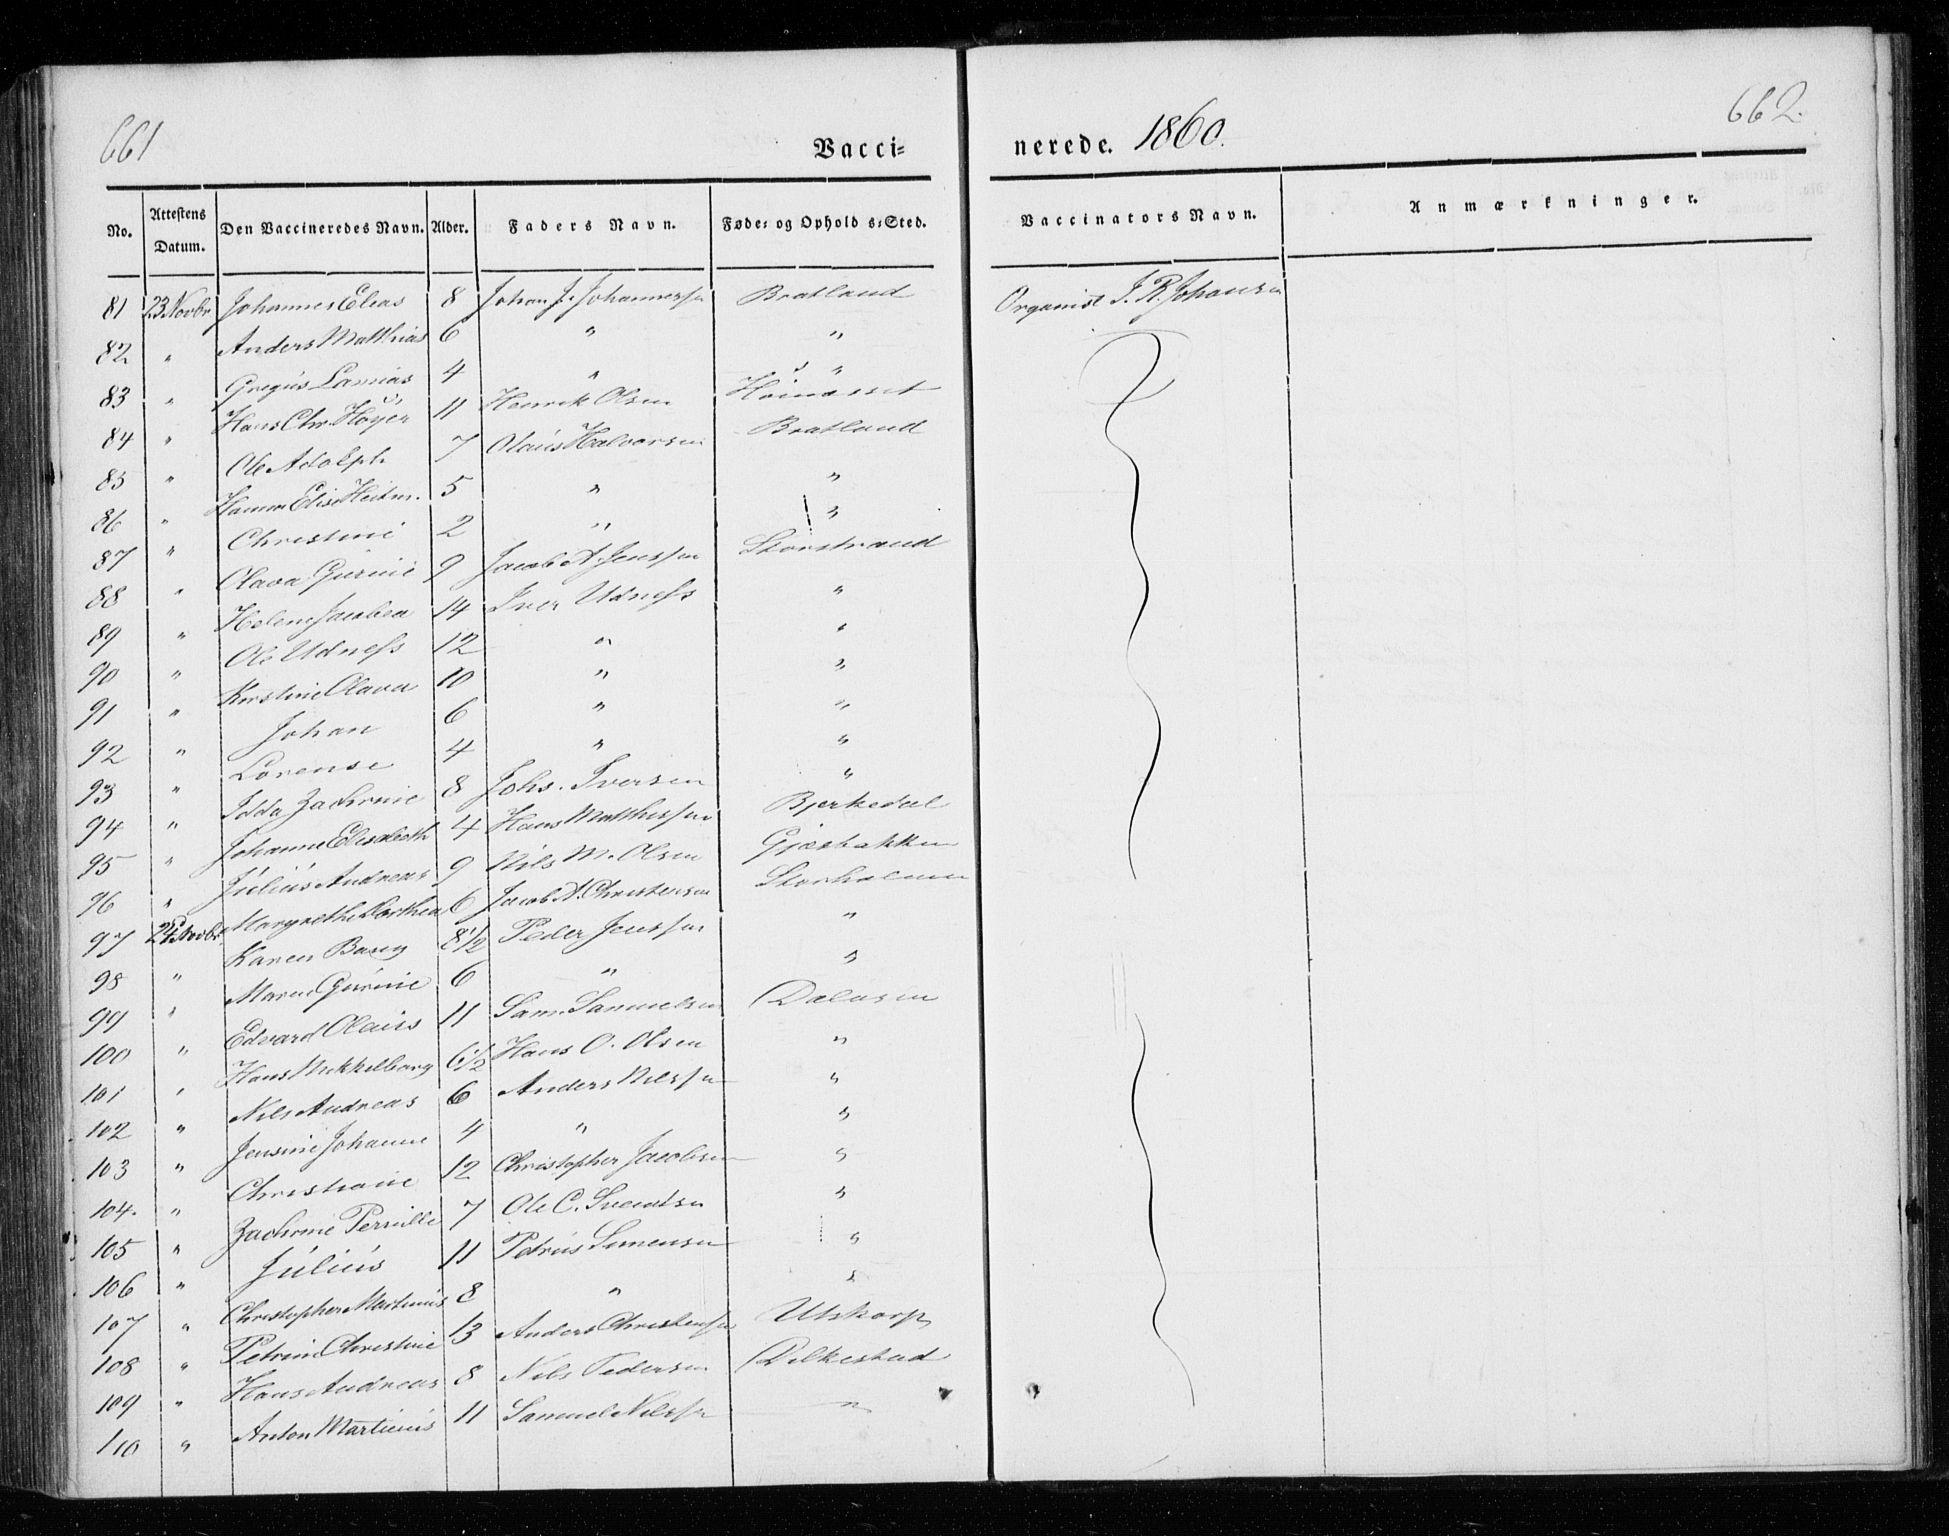 661
Vacci=
nerede. 1860.
662.
No. Attestens Datum. Den Vaccineredes Navn. Alder. Faders Navn. Føde= og Opholds=Sted. Vaccinators Navn. Anmærkninger.
81 23 Novbr Johannes Elias 8 Johan J. Johannessen Bratland Organist J. R. Johansen
82 " Anders Matthias 6 " "
83 " Gregus Lamias 4 " "
84 " Hans Chr. Høyer 11 Henrik Olsen
85 " Ole Adolph 7 Olaus Halvorsen Bratland
86 " Hanna Elise Heitm. 5 " "
87 " Christine 2 " "
88 " Olava Gurine 9 Jacob A. Jenssen Storstrand
89 " Helene Jacobea 14 Iver Udness "
90 " Ole Udness 12 " "
91 " Kirstine Olava 10 " "
92 " Johan 6 " "
93 " Lorense 4 " "
94 " Idda Zachrine 8 Johs. Iversen "
95 " Johanne Elisabeth 4 Hans Matthissen Bjerkedal
96 " Julius Andreas 9 Nils M. Olsen Gjæsbakken
97 24 Novbr Margrethe Dorthea 6 Jacob A. Christensen Storholmen
98 " Karen Barg 8½ Peder Jenssen "
99 " Maren Gurine 6 " "
100 " Edvard Olaus 11 Sam. Samuelsen Dalosen
101 " Hans Mikkelborg 6½ Hans O. Olsen "
102 " Nils Andreas 6 Anders Nilssen "
103 " Jensine Johanne 4 " "
104. " Christiane 12 Christopher Jacobsen "
105 " Zachrine Pernille 7 Ole C. Svendsen "
106 " Julius 11 Petrus Simensen "
107 " Christopher Martinus 8 " "
108 " Petrine Christine 13 Anders Christensen Utskarp
109 " Hans Andreas 8 Nils Pedersen Dilkestad
110 " Anton Martinus 11 Samuel Nilssen "